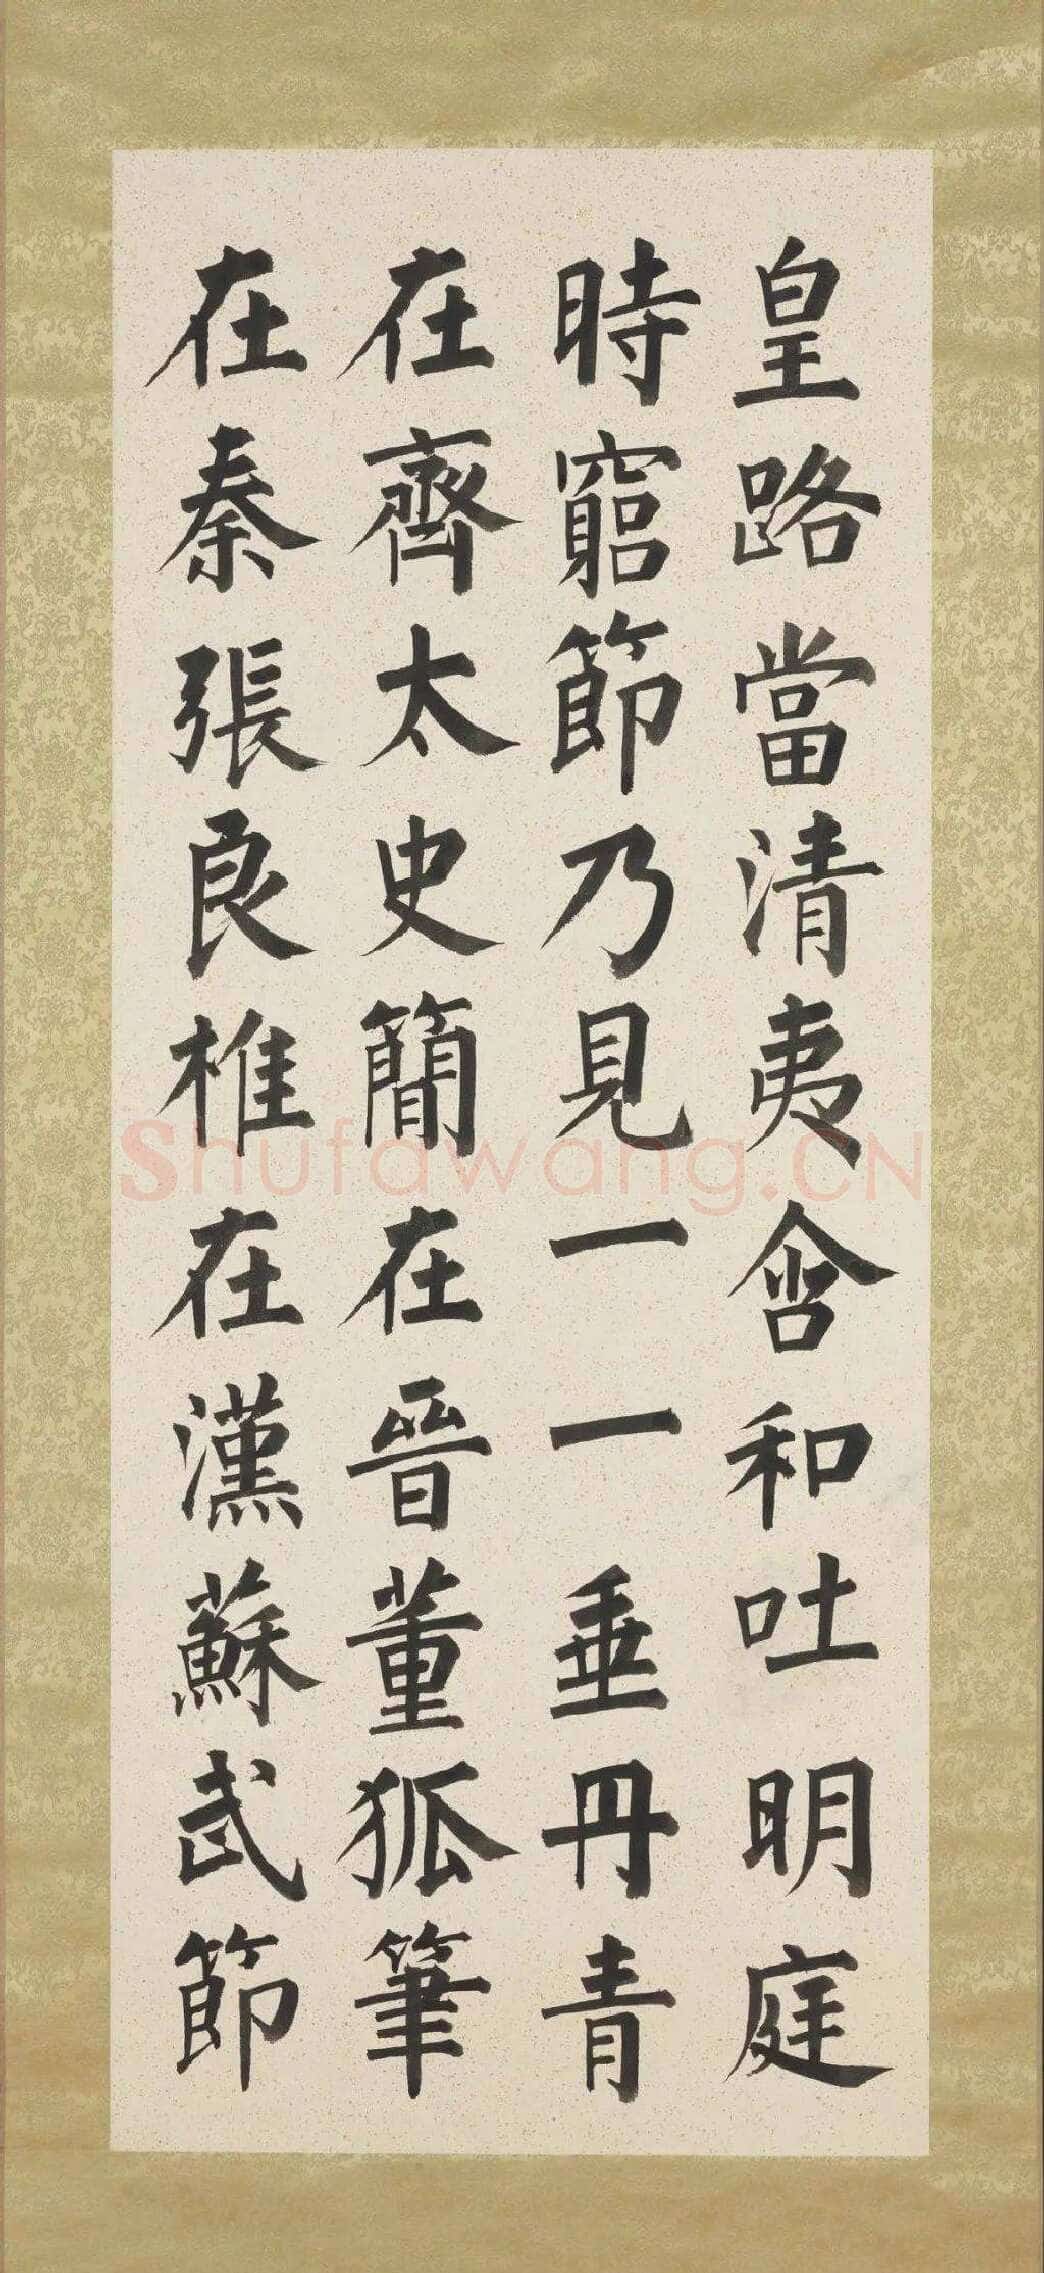 皇路當清夷含和吐明庭
時窮節乃見一一垂丹青
在齊太史簡在晉董狐筆
在秦張良椎在漢蘇武節
Shufawang.CN